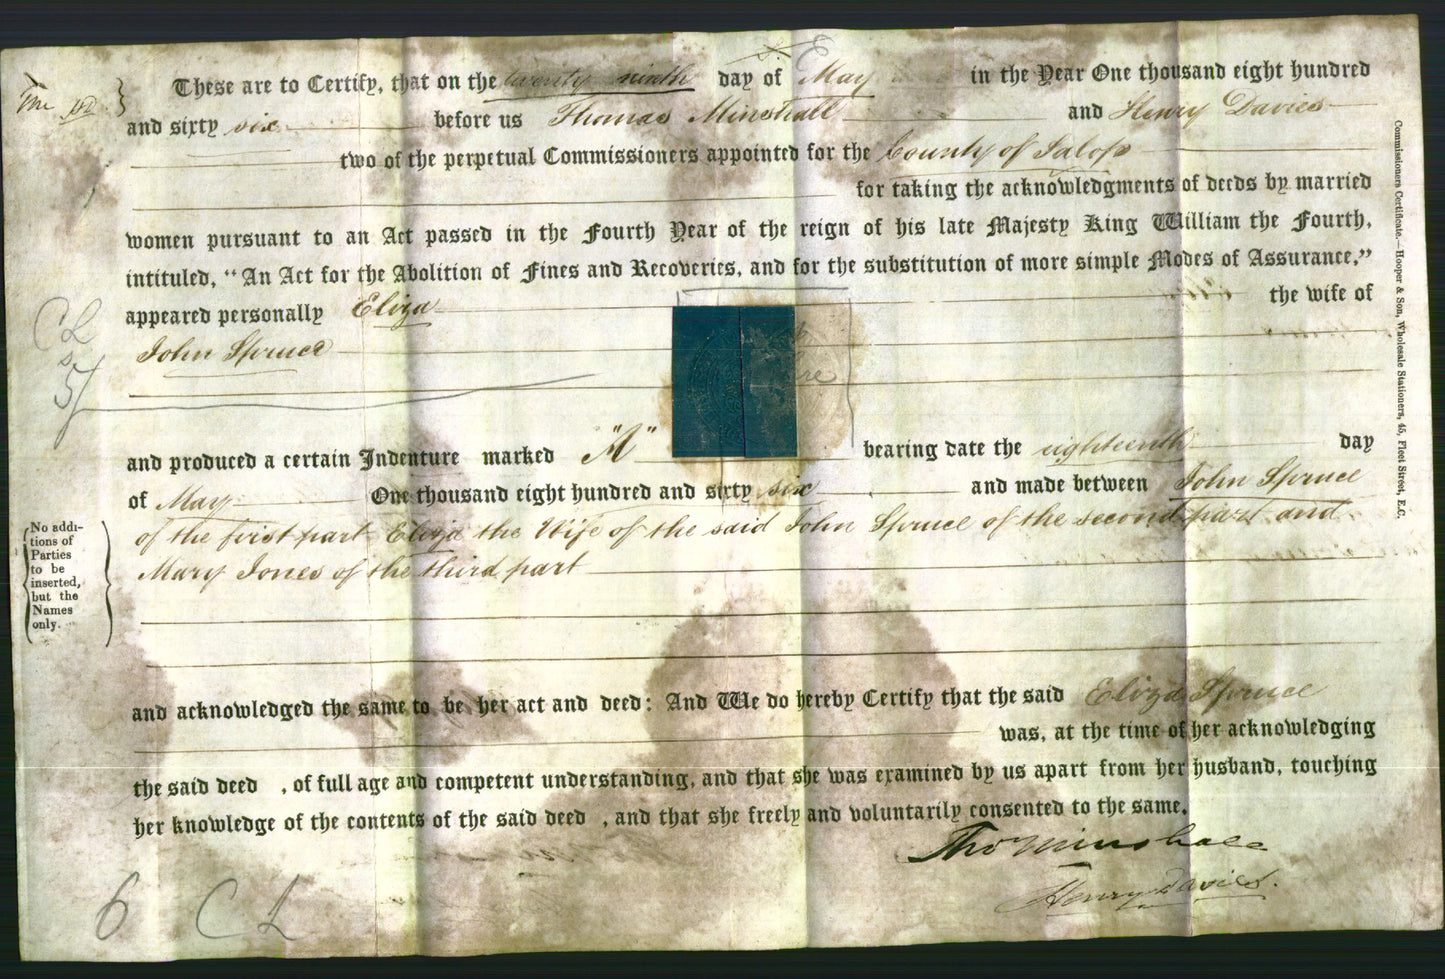 These are to Certify, that on the twenty ninth day of May in the Year One thousand eight hundred
and sixty six before us Thomas Minshall and Henry Davies
two of the perpetual Commissioners appointed for the County of Salop
for taking the acknowledgments of deeds by married
women pursuant to an Act passed in the Fourth Year of the reign of his late Majesty King William the Fourth,
intituled, “An Act for the Abolition of Fines and Recoveries, and for the substitution of more simple Modes of Assurance,”
appeared personally Eliza the wife of
John Spruce
CL
5/
and produced a certain Indenture marked "A" bearing date the eighteenth day
of May One thousand eight hundred and sixty six and made between John Spruce
of the first part Eliza the Wife of the said John Spruce of the second part and
Mary Jones of the third part
No addi-
tions of
Parties
to be
inserted,
but the
Names
only.
and acknowledged the same to be her act and deed: And We do hereby Certify that the said Eliza Spruce
was, at the time of her acknowledging
the said deed , of full age and competent understanding, and that she was examined by us apart from her husband, touching
her knowledge of the contents of the said deed , and that she freely and voluntarily consented to the same.
Tho Minshall
Henry Davies.
6 CL
Commissioners Certificate.—Hooper & Son, Wholesale Stationers, 45, Fleet Street, E.C.